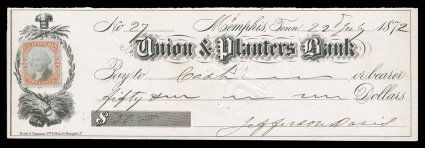 No 27 Memphis, Tenn. 22d July 1872
Union & Planters Bank
Pay to Cash or bearer
fifty Dollars
$
Jefferson Davis